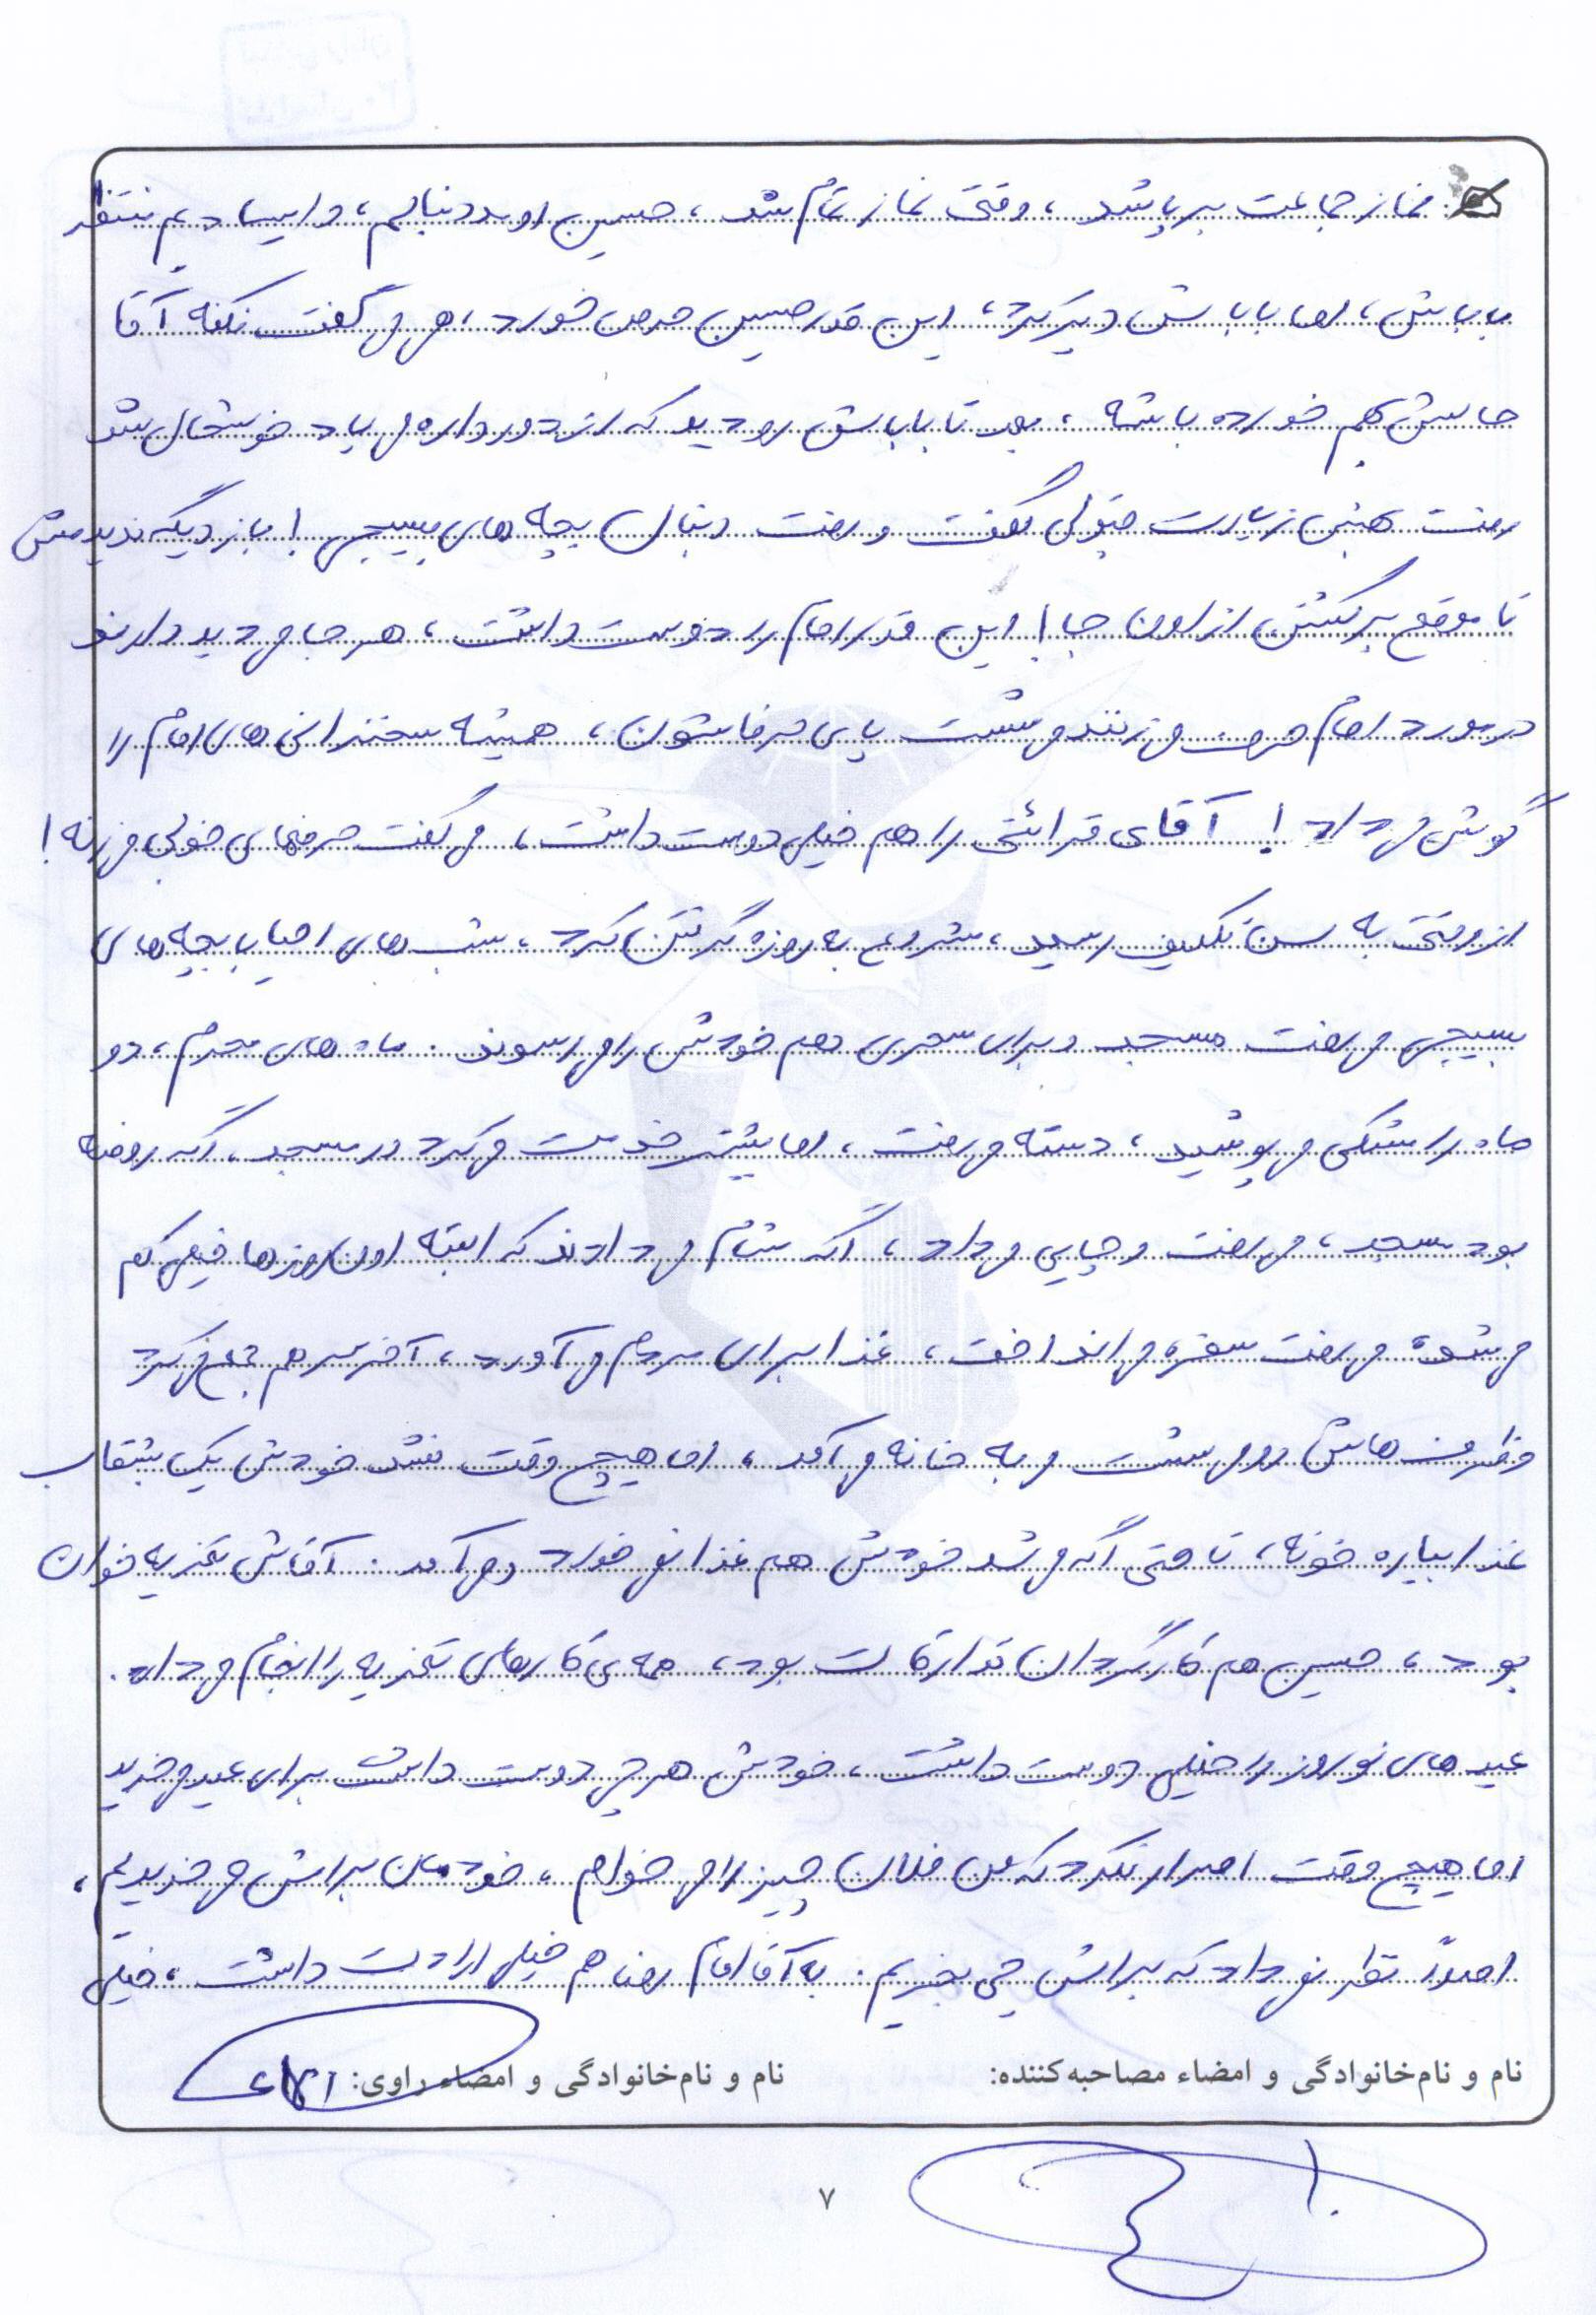 نماز جماعت برپا شد، وقتی نماز تمام شد، حسین اومد دنبالم، وایسادیم منتظر
باباش، اما باباش دیر کرد، این قدر حسین حرص خورد، هی می گفت نکنه آقا
حالش بهم خورده باشه، بعد تا باباش رو دید که از دور داره می یاد خوشحال شد
رفت همین زیارت قبولی گفت و رفت دنبال بچه های بسیجی! باز دیگه ندیدمش
تا موقع برگشتن از اون جا! این قدر امام را دوست داشت، هر جا می دید دارند
در مورد امام حرف می زنند می نشست پای حرفاشون، همیشه سخنرانی های امام را
گوش می داد! آقای قرائتی را هم خیلی دوست داشت، می گفت حرفهای خوبی می زنه!
از وقتی به سن تکلیف رسید، شروع به روزه گرفتن کرد، شب های احیا با بچه های
بسیجی می رفت مسجد و برای سحری هم خودش را می رسوند. ماه های محرم، دو
ماه را مشکی می پوشید، دسته می رفت، اما بیشتر خدمت می کرد در مسجد، اگه روضه
بود مسجد، می رفت و چایی می داد، اگه شام می دادند که البته اون روزها خیلی کم
می شد، می رفت سفره می انداخت، غذا برای مردم می آورد، آخر سر هم جمع می کرد
ظرف هاش رو می شست و به خانه می آمد، اما هیچ وقت نشد خودش یک بشقاب
غذا بیاره خونه، تا حتی اگه می شد خودش هم غذا نمی خورد و می آمد. آقاش تعزیه خوان
بود، حسین هم کارگردان تدارکات بود، همه ی کارهای تعزیه را انجام می داد.
عید های نوروز را خیلی دوست داشت، خودش هر چی دوست داشت برای عید می خرید
اما هیچ وقت اصرار نکرد که من فلان چیز را می خوام، خودمان براش می خریدیم،
اصلاً نظر نمی داد که براش چی بخریم. به آقا امام رضا هم خیلی ارادت داشت، خیلی
نام و نام‌خانوادگی و امضاء مصاحبه‌کننده: نام و نام‌خانوادگی و امضاء راوی:
۷